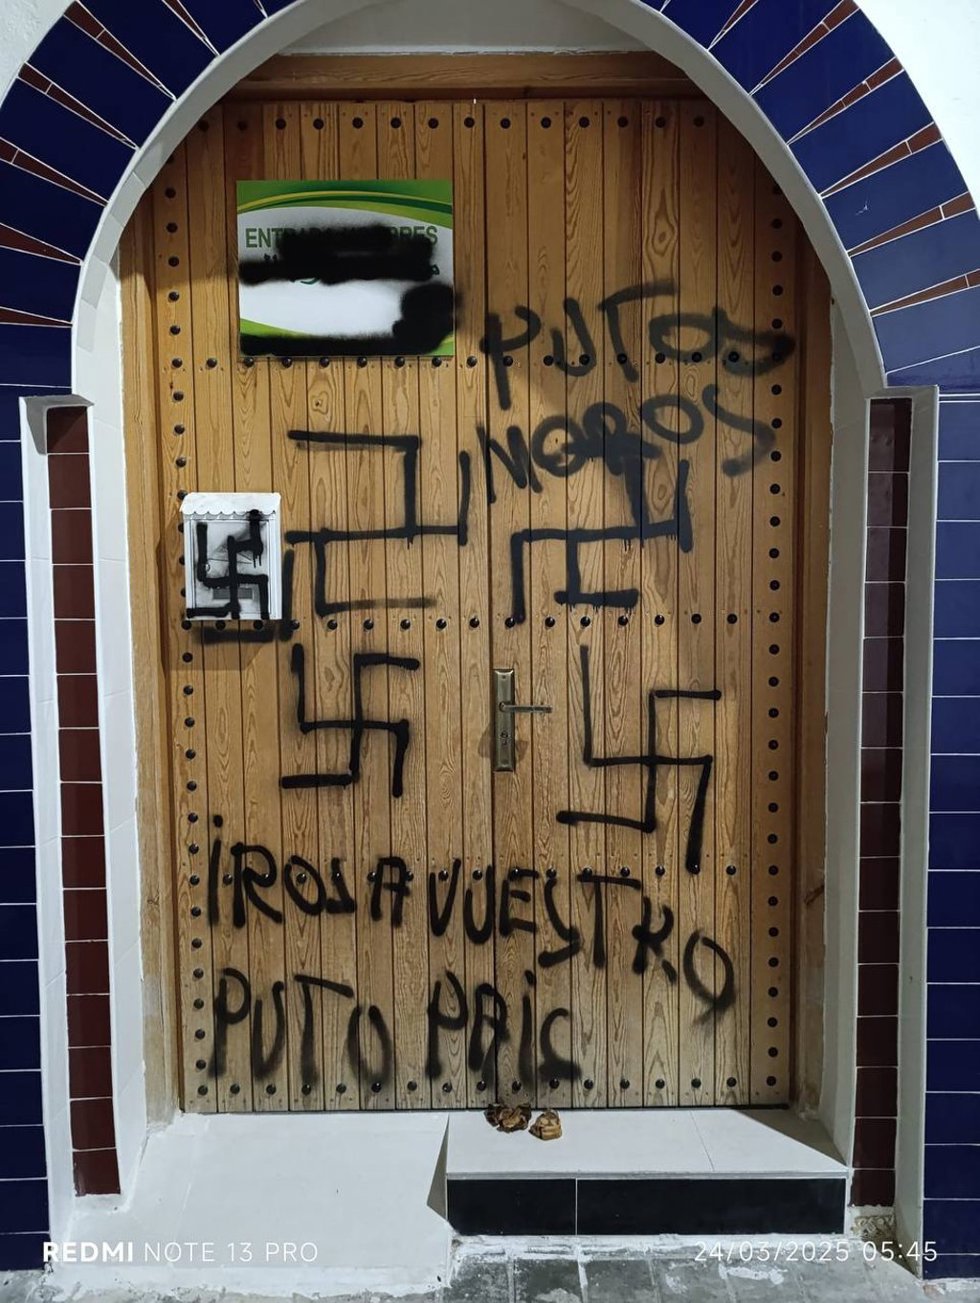 ENTRADA HOMBRES
PUTOS
MOROS
iROS A VUESTRO
PUTO PAiS
REDMI NOTE 13 PRO
24/03/2025 05:45